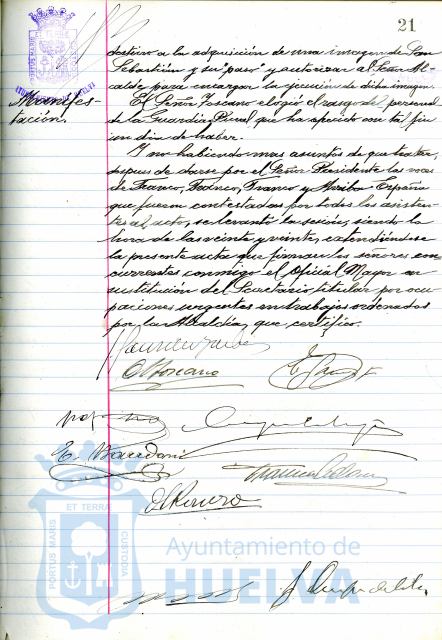 21
destino a la adquisición de una imagen de San
Sebastián y su "paso" y autorizar al Señor Al-
calde para encargar la ejecución de dicha imagen.
Manifes-
tación.
El Señor Toscano elogió el rasgo del personal
de la Guardia Rural que ha ofrecido con tal fin
un día de haber.
Y no habiendo mas asuntos de que tratar,
despues de darse por el Señor Presidente las voces
de Franco, Franco, Franco y Arriba España
que fueron contestadas por todos los asisten-
tes al acto, se levantó la sesión, siendo la
hora de las veinte y veinte, extendiéndose
la presente acta que firman los señores con-
currentes conmigo el Oficial Mayor en
sustitución del Secretario titular por ocu-
paciones urgentes en trabajos ordenados
por la Alcaldía, que certifico.
O Toscano
PORTUS MARIS
ET TERRA
CUSTODIA
Ayuntamiento de
HUELVA